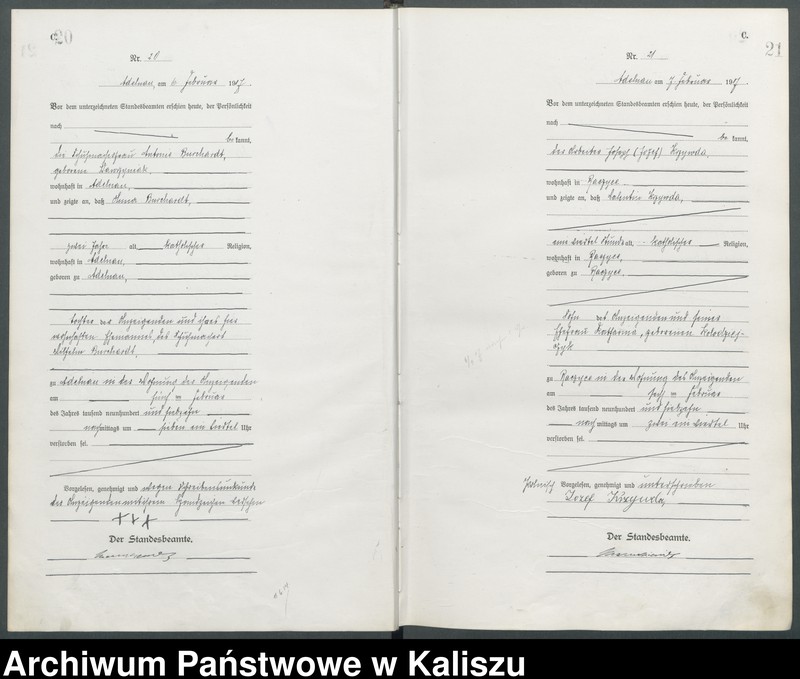 C.
20
Nr. 20
Adelnau, am 6. Februar 1917.
Vor dem unterzeichneten Standesbeamten erschien heute, der Persönlichkeit
nach
be kannt,
die Schuhmacherfrau Antonie Burchardt,
geborene
wohnhaft in Adelnau,
und zeigte an, daß Anna Burchardt,
zwei Jahre alt, katholischer Religion,
wohnhaft in Adelnau,
geboren zu Adelnau,
Tochter der Anzeigenden und ihres hier
wohnhaften Ehemannes des Schuhmachers
Wilhelm Burchardt,
zu Adelnau in der Wohnung der Anzeigenden
am Februar
des Jahres tausend neunhundert und siebzehn
nachmittags um sieben ein viertel Uhr
verstorben sei.
Vorgelesen, genehmigt und wegen Schreibensunkunde
der Anzeigenden mit ihrem Handzeichen versehen
+++
Der Standesbeamte.
C.
21
Nr. 21
Adelnau am 7. Februar 1917.
Vor dem unterzeichneten Standesbeamten erschien heute, der Persönlichkeit
nach
be kannt,
der Arbeiter Joseph (Jozef) Krzywda,
wohnhaft in Raczyce
und zeigte an, daß Valentin Krzywda,
ein viertel Stunde alt, katholischer Religion,
wohnhaft in Raczyce,
geboren zu Raczyce
Sohn des Anzeigenden und seiner
Ehefrau Katharina, geborenen Kolodziej-
czyk
zu Raczyce in der Wohnung des Anzeigenden
am Februar
des Jahres tausend neunhundert und siebzehn
nachmittags um ein viertel Uhr
verstorben sei.
Polnisch Vorgelesen, genehmigt und unterschrieben
Jozef Krzywda,
Der Standesbeamte.
Archiwum Państwowe w Kaliszu